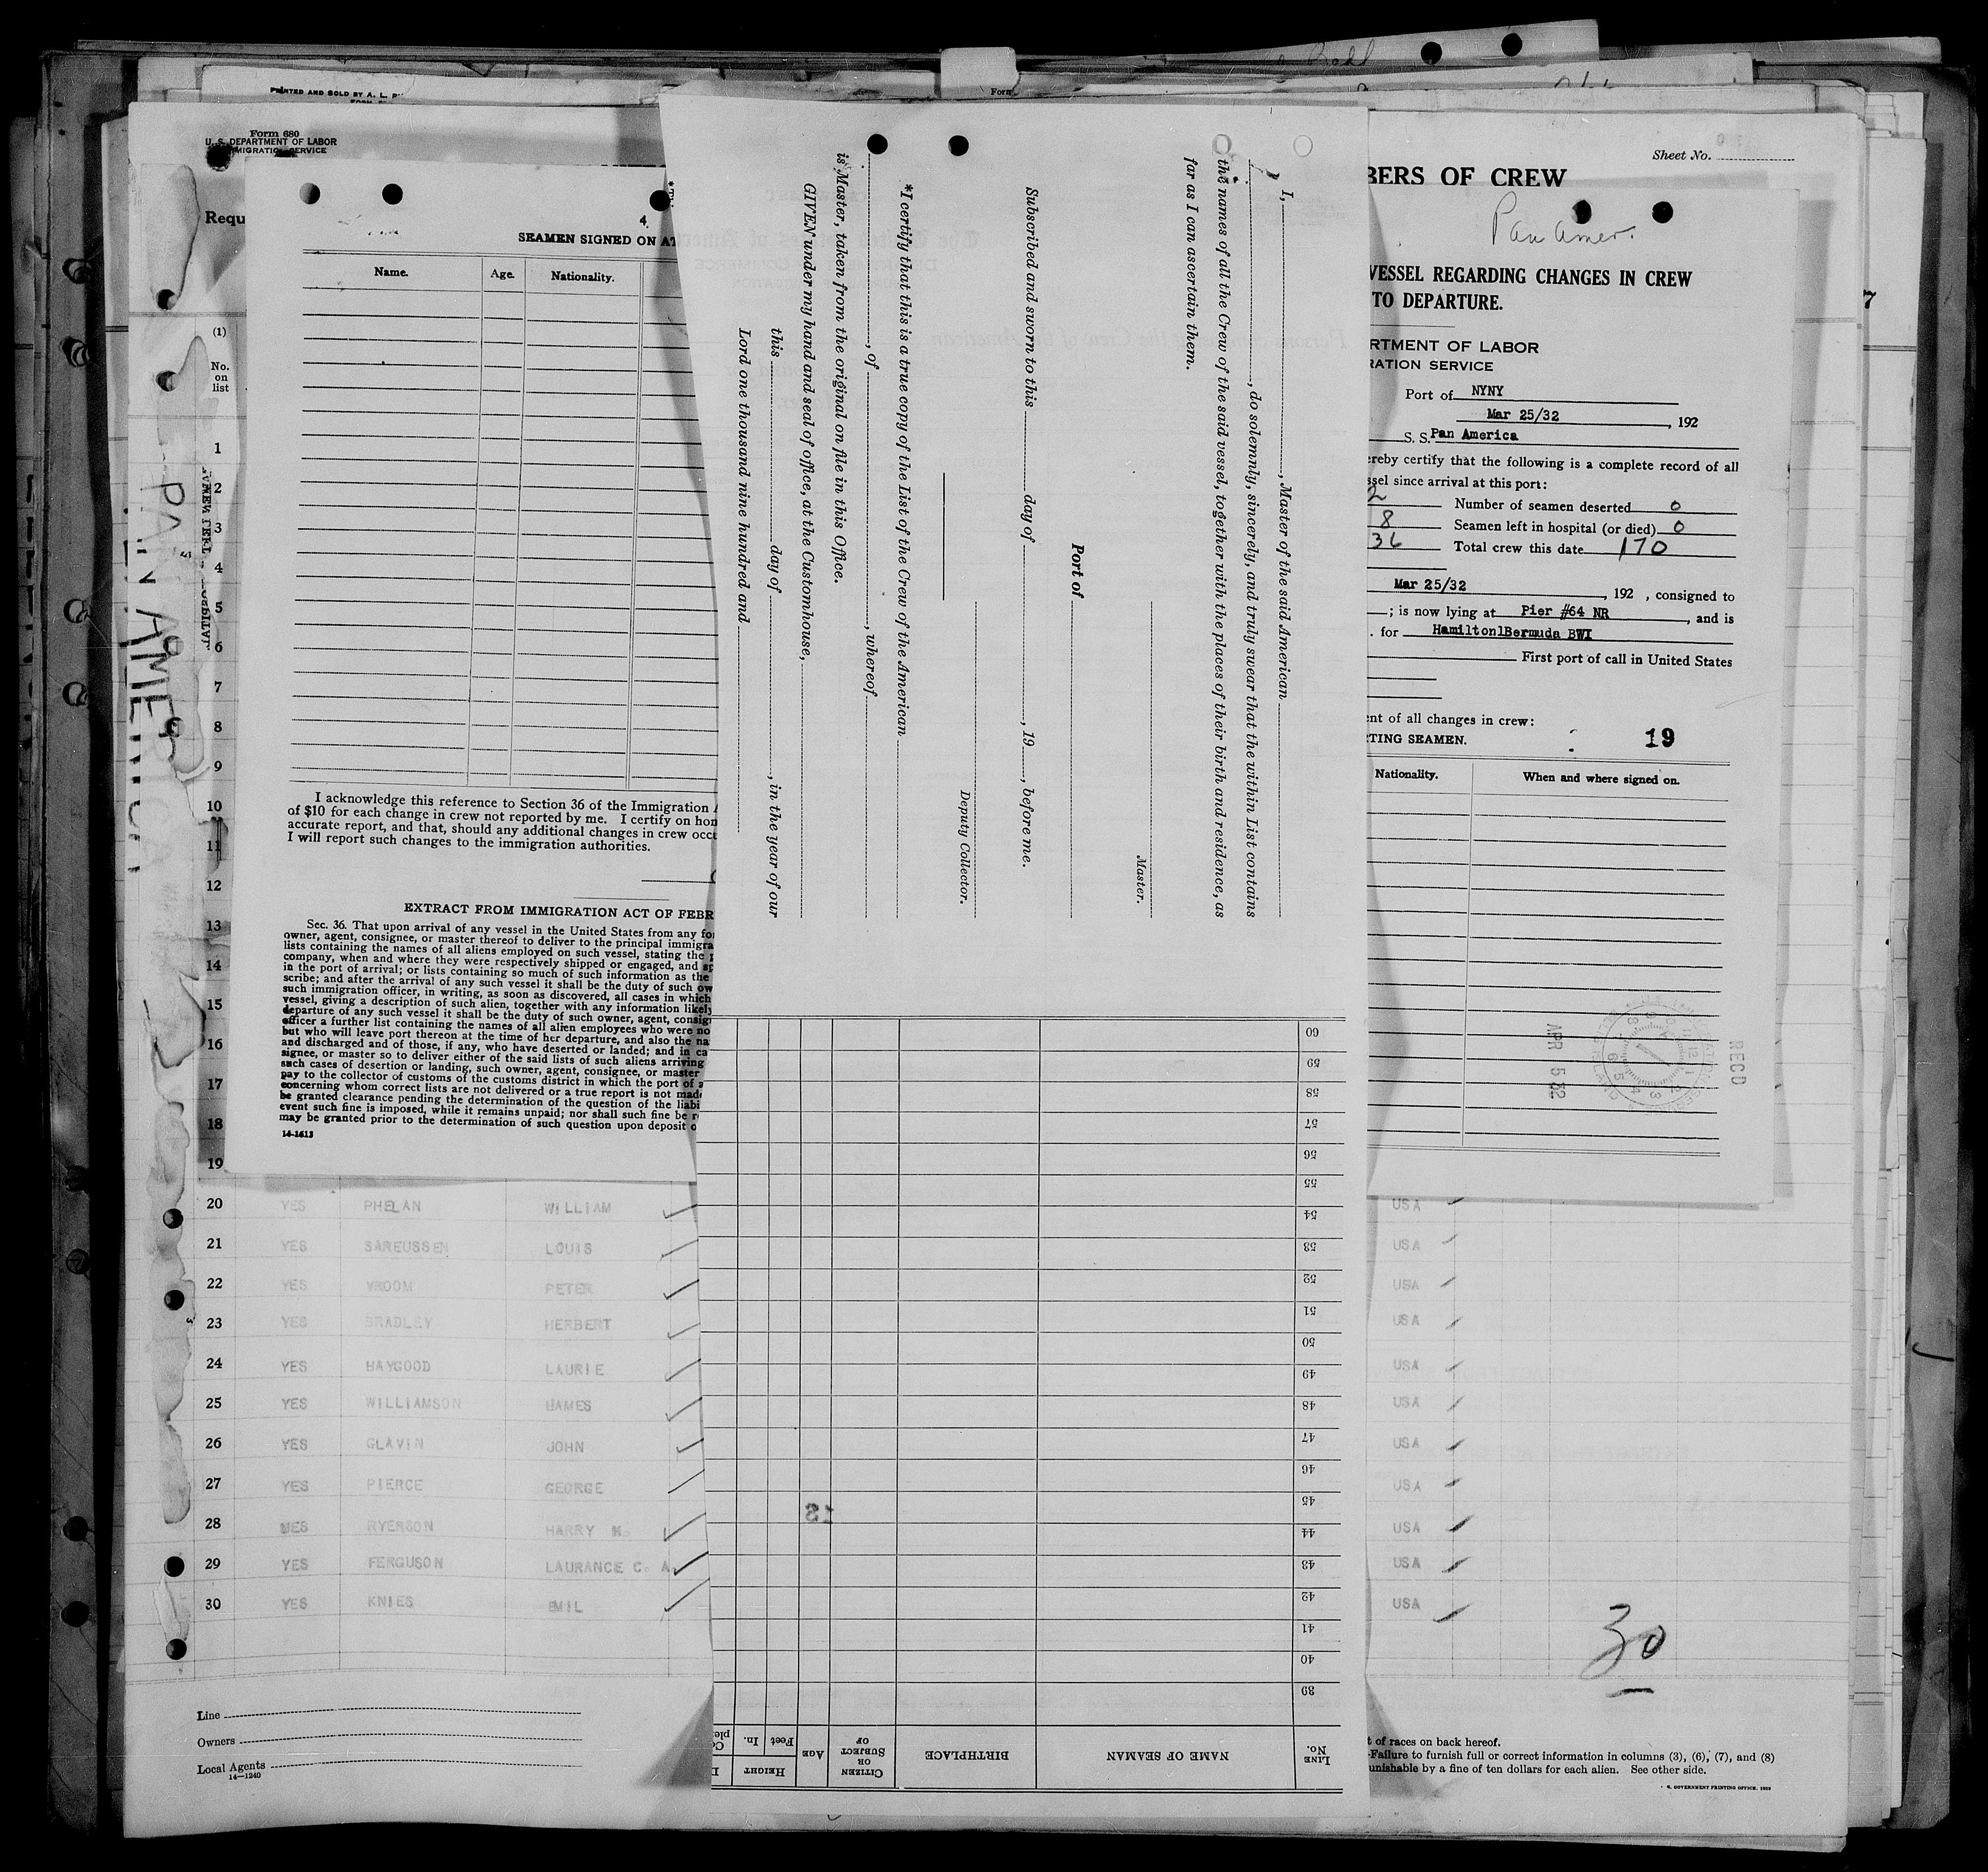 PRINTED AND SOLD BY A. L.
Form
Form 680
U. S. DEPARTMENT OF LABOR
IMMIGRATION SERVICE
Requ
(1)
No.
on
list
1
2
3
4
5
6
7
8
9
10
11
12
13
14
15
16
17
18
19
PAN AMERICA
4
SEAMEN SIGNED ON AT
Name. Age. Nationality.
I acknowledge this reference to Section 36 of the Immigration
of $10 for each change in crew not reported by me. I certify on hon
accurate report, and that, should any additional changes in crew occu
I will report such changes to the immigration authorities.
EXTRACT FROM IMMIGRATION ACT OF FEBR
Sec. 36. That upon arrival of any vessel in the United States from any fo
owner, agent, consignee, or master thereof to deliver to the principal immigra
lists containing the names of all aliens employed on such vessel, stating the
company, when and where they were respectively shipped or engaged, and sp
in the port of arrival; or lists containing so much of such information as the
scribe; and after the arrival of any such vessel it shall be the duty of such ow
such immigration officer, in writing, as soon as discovered, all cases in which
vessel, giving a description of such alien, together with any information likely
departure of any such vessel it shall be the duty of such owner, agent, consig
officer a further list containing the names of all alien employees who were no
but who will leave port thereon at the time of her departure, and also the na
and discharged and of those, if any, who have deserted or landed; and in ca
signee, or master so to deliver either of the said lists of such aliens arriving
such cases of desertion or landing, such owner, agent, consignee, or master
pay to the collector of customs of the customs district in which the port of a
concerning whom correct lists are not delivered or a true report is not made
be granted clearance pending the determination of the question of the liabi
event such fine is imposed, while it remains unpaid; nor shall such fine be r
may be granted prior to the determination of such question upon deposit o
14-1613
20 YES PHELAN WILLIAM USA
21 YES SAREUSSEN LOUIS USA
22 YES VROOM PETER USA
23 YES BRADLEY HERBERT USA
24 YES HAYGOOD LAURIE USA
25 YES WILLIAMSON JAMES USA
26 YES GLAVIN JOHN USA
27 YES PIERCE GEORGE USA
28 YES RYERSON HARRY M. USA
29 YES FERGUSON LAURANCE C. A. USA
30 YES KNIES EMIL USA
30
Line
Owners
Local Agents
14—1240
I, , Master of the said American
, do solemnly, sincerely, and truly swear that the within List contains
the names of all the Crew of the said vessel, together with the places of their birth and residence, as
far as I can ascertain them.
Master.
Port of
Subscribed and sworn to this day of , 19 , before me.
Deputy Collector.
*I certify that this is a true copy of the List of the Crew of the American
, of , whereof
is Master, taken from the original on file in this Office.
GIVEN under my hand and seal of office, at the Customhouse,
this day of , in the year of our
Lord one thousand nine hundred and
LINE No. NAME OF SEAMAN BIRTHPLACE CITIZEN OR SUBJECT OF AGE HEIGHT Feet In.
39
40
41
42
43
44
45
46
47
48
49
50
51
52
53
54
55
56
57
58
59
60
13
Sheet No.
BERS OF CREW
Pan Amer.
VESSEL REGARDING CHANGES IN CREW
TO DEPARTURE.
RTMENT OF LABOR
RATION SERVICE
Port of NYNY
Mar 25/32 , 192
S. S. Pan America
ereby certify that the following is a complete record of all
ssel since arrival at this port:
2 Number of seamen deserted 0
8 Seamen left in hospital (or died) 0
36 Total crew this date 170
Mar 25/32 , 192 , consigned to
; is now lying at Pier #64 NR , and is
. for Hamilton1Bermuda BWI
First port of call in United States
ent of all changes in crew:
TING SEAMEN. 19
Nationality. When and where signed on.
RECD
APR 5 32
7
t of races on back hereof.
Failure to furnish full or correct information in columns (3), (6), (7), and (8)
unishable by a fine of ten dollars for each alien. See other side.
GOVERNMENT PRINTING OFFICE